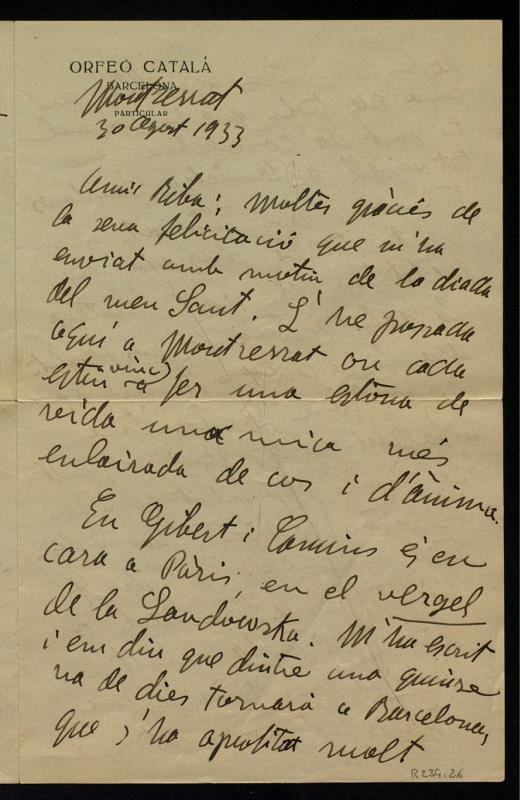 ORFEÓ CATALÁ
BARCELONA
Montserrat
PARTICULAR
30 Agost 1933
Amic Riba: Moltes gràcies de
la seva felicitació que m'ha
enviat amb motiu de la diada
del meu Sant. L'he passada
aquí a Montserrat on cada
estiu vinc a fer una estona de
vida una mica més
enlairada de cos i d'ànima.
En Gibert i Camins és en
cara a París, en el vergel
de la Landowska. M'ha escrit
i em diu que dintre una quinze
na de dies tornarà a Barcelona,
que s'ha aprofitat molt
R239.26